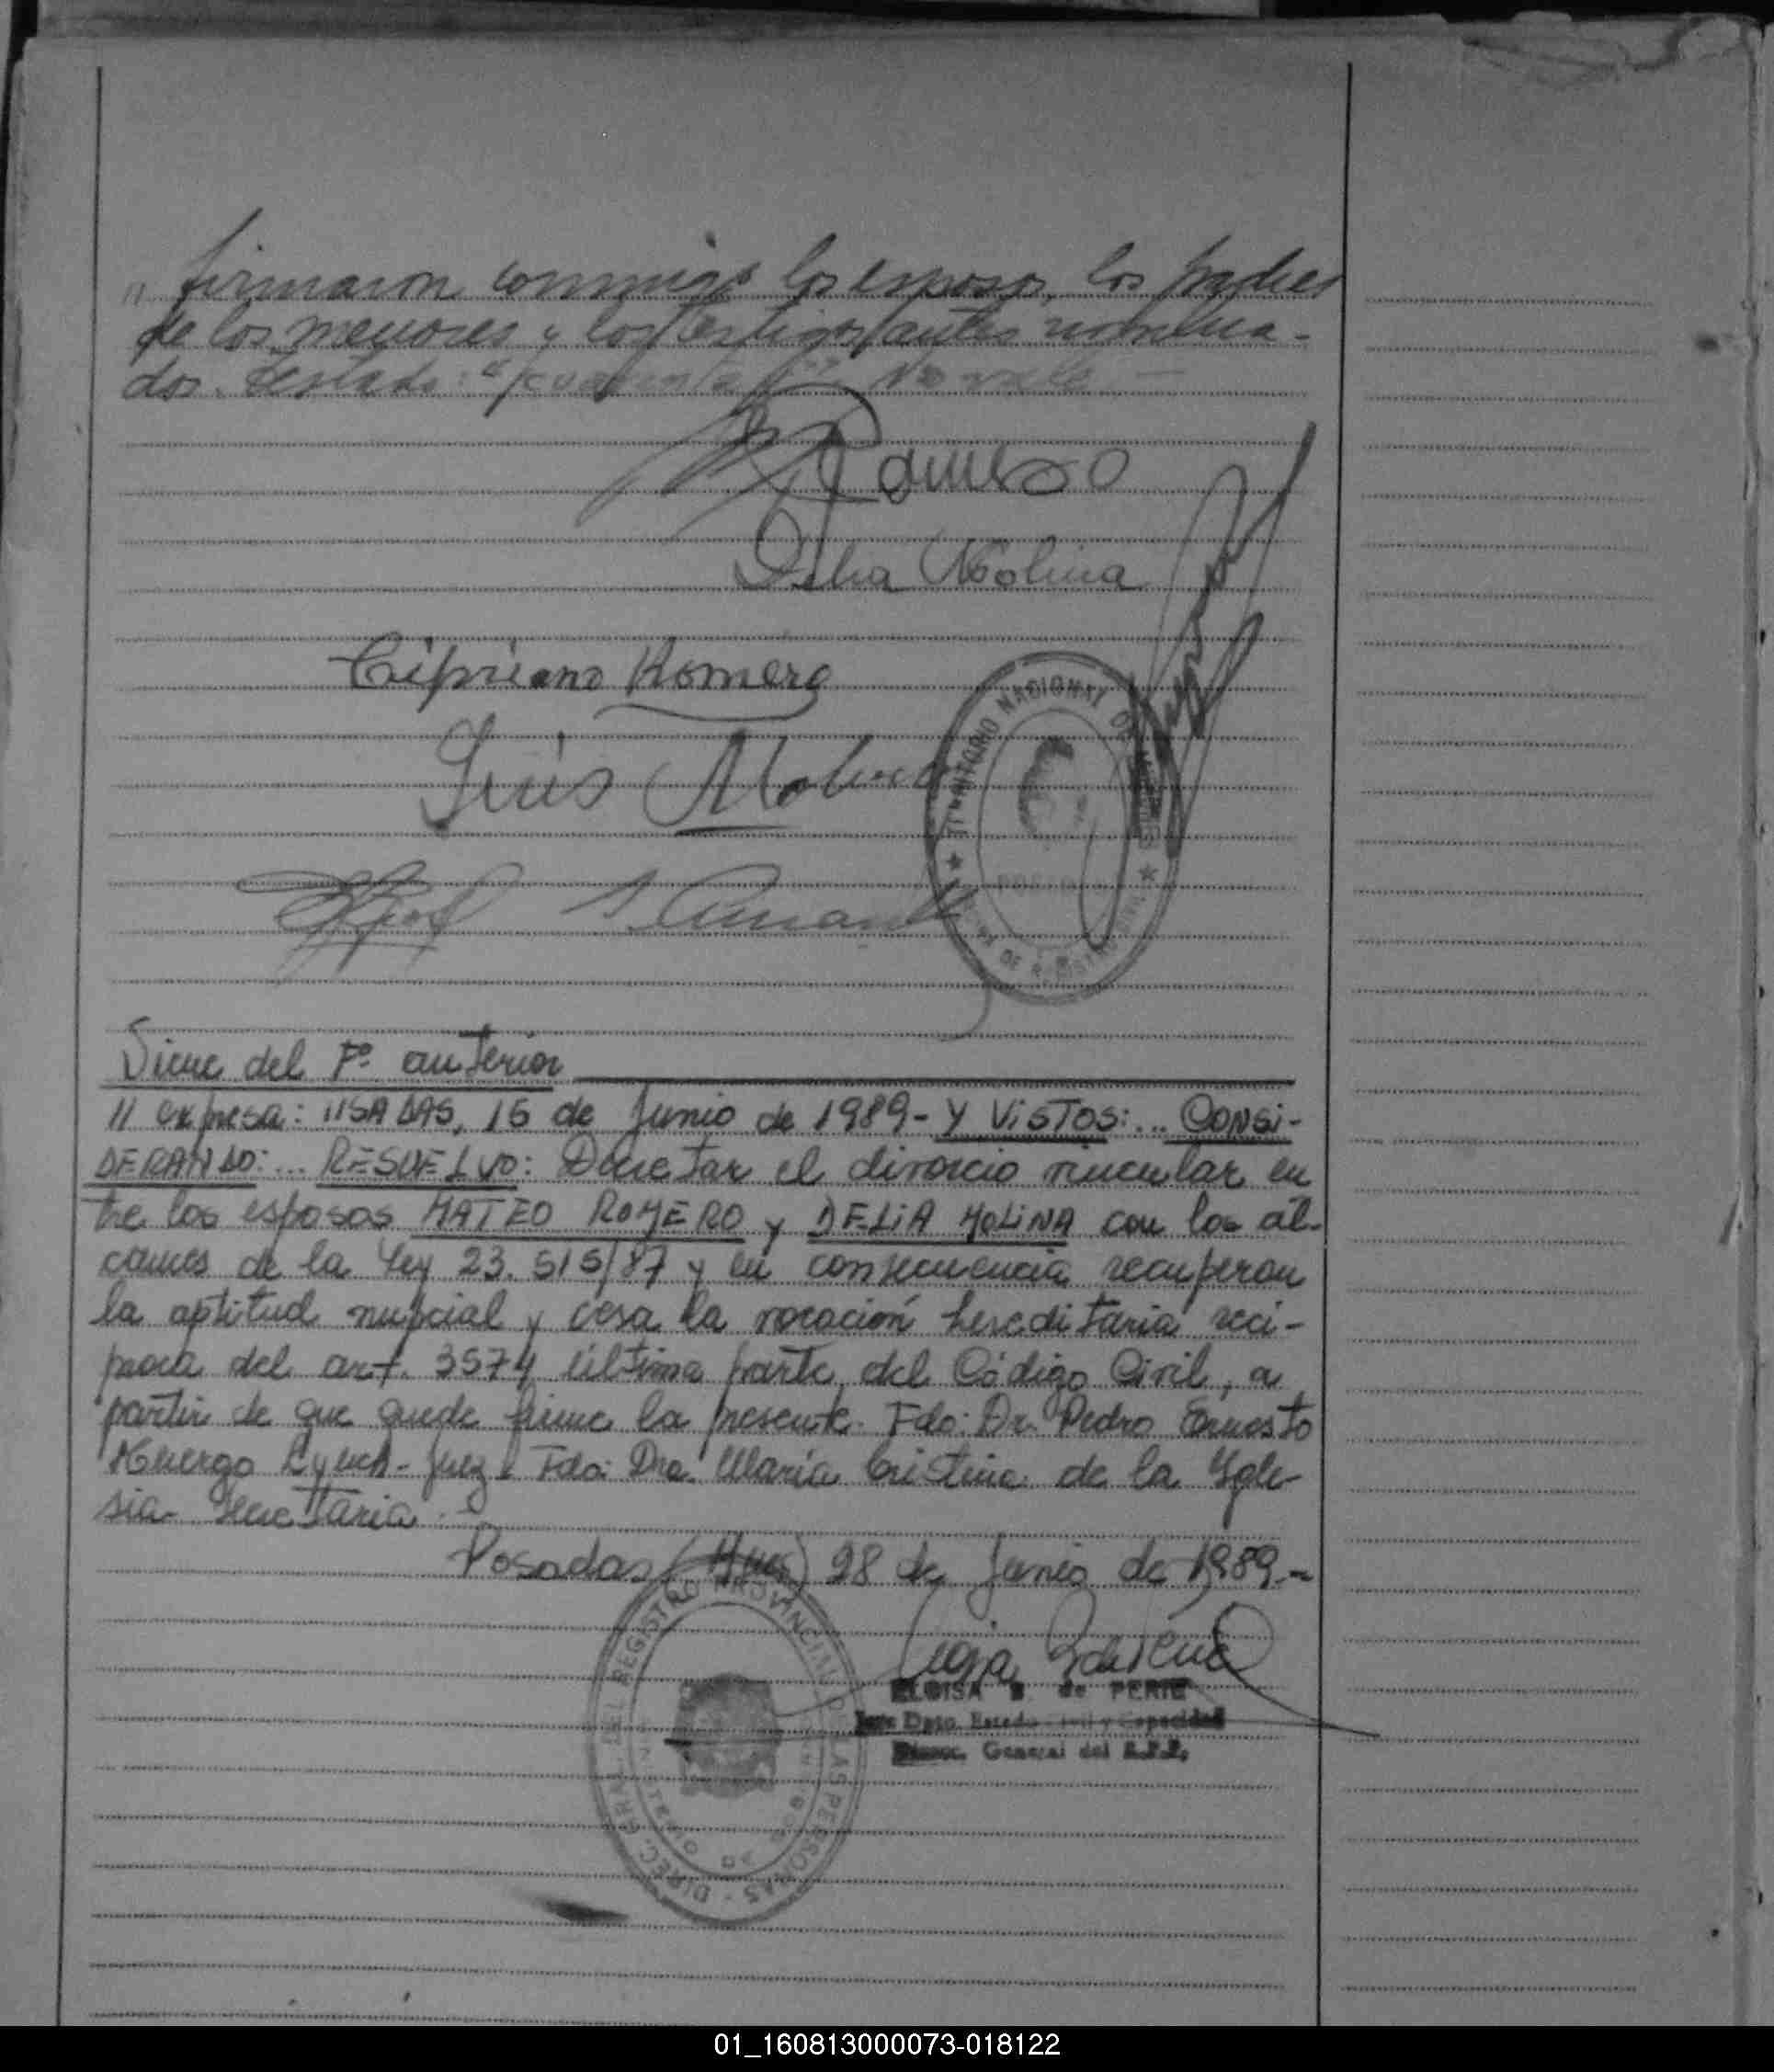 " firmaron conmigo los esposos, los padres
de los menores y los testigos antes nombra-
dos. Testado: No vale —
Romero
Delia Molina
Cipriano Romero
Luis Molina
TERRITORIO NACIONAL DE MISIONES
DE REGISTRO CIVIL
Viene del Fº anterior
// expresa: //SADAS, 15 de Junio de 1989- Y VISTOS:... CONSI-
DERANDO:... RESUELVO: Decretar el divorcio vincular en
tre los esposos MATEO ROMERO y DELIA MOLINA con los al-
cances de la Ley 23.515/87 y en consecuencia recuperan
la aptitud nupcial y cesa la vocación hereditaria recí-
proca del art. 3574 última parte del Código Civil, a
partir de que quede firme la presente. Fdo: Dr. Pedro Ernesto
Huergo Lynch- Juez- Fdo: Dra. María Cristina de la Igle-
sia- Secretaria.
Posadas (Mnes) 28 de Junio de 1989.-
ELOISA B. de PERIE
Jefe Dpto. Estado Civil y Capacidad
Direcc. General del R.P.P.
DIREC. GRAL. DEL REGISTRO PROVINCIAL DE LAS PERSONAS
01_160813000073-018122